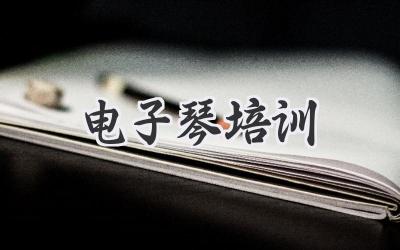 电子琴培训